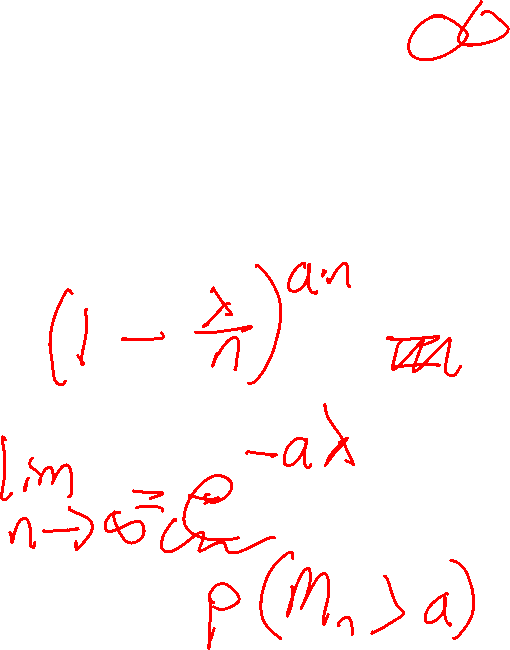 ∞
(1 - λ/n)^{a·n}
lim n→∞ = e^{-aλ}
P(M_n > a)